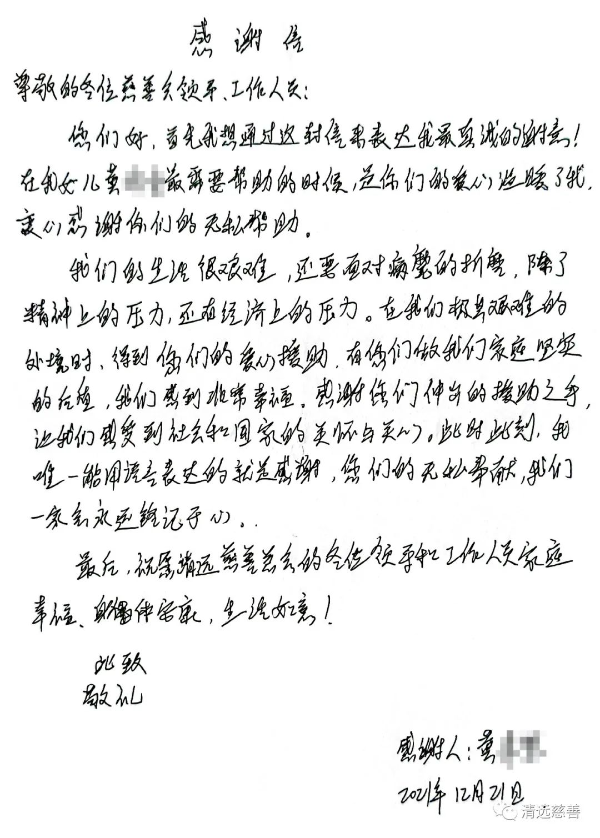 感谢信
尊敬的各位慈善会领导、工作人员：
您们好，首先我想通过这封信来表达我最真诚的谢意！
在我女儿黄最需要帮助的时候，是你们的爱心温暖了我，
衷心感谢你们的无私帮助。
我们的生活很艰难，还要面对病魔的折磨，除了
精神上的压力，还有经济上的压力。在我们极其艰难的
处境时，得到您们的爱心援助，有您们做我们家庭坚实
的后盾，我们感到非常幸福。感谢你们伸出的援助之手，
让我们感受到社会和国家的关怀与关心。此时此刻，我
唯一能用语言表达的就是感谢，您们的无私奉献，我们
一家会永远铭记于心。
最后，祝愿清远慈善总会的各位领导和工作人员家庭
幸福、身体安康，生活如意！
此致
敬礼
感谢人：黄
2021年12月21日
清远慈善